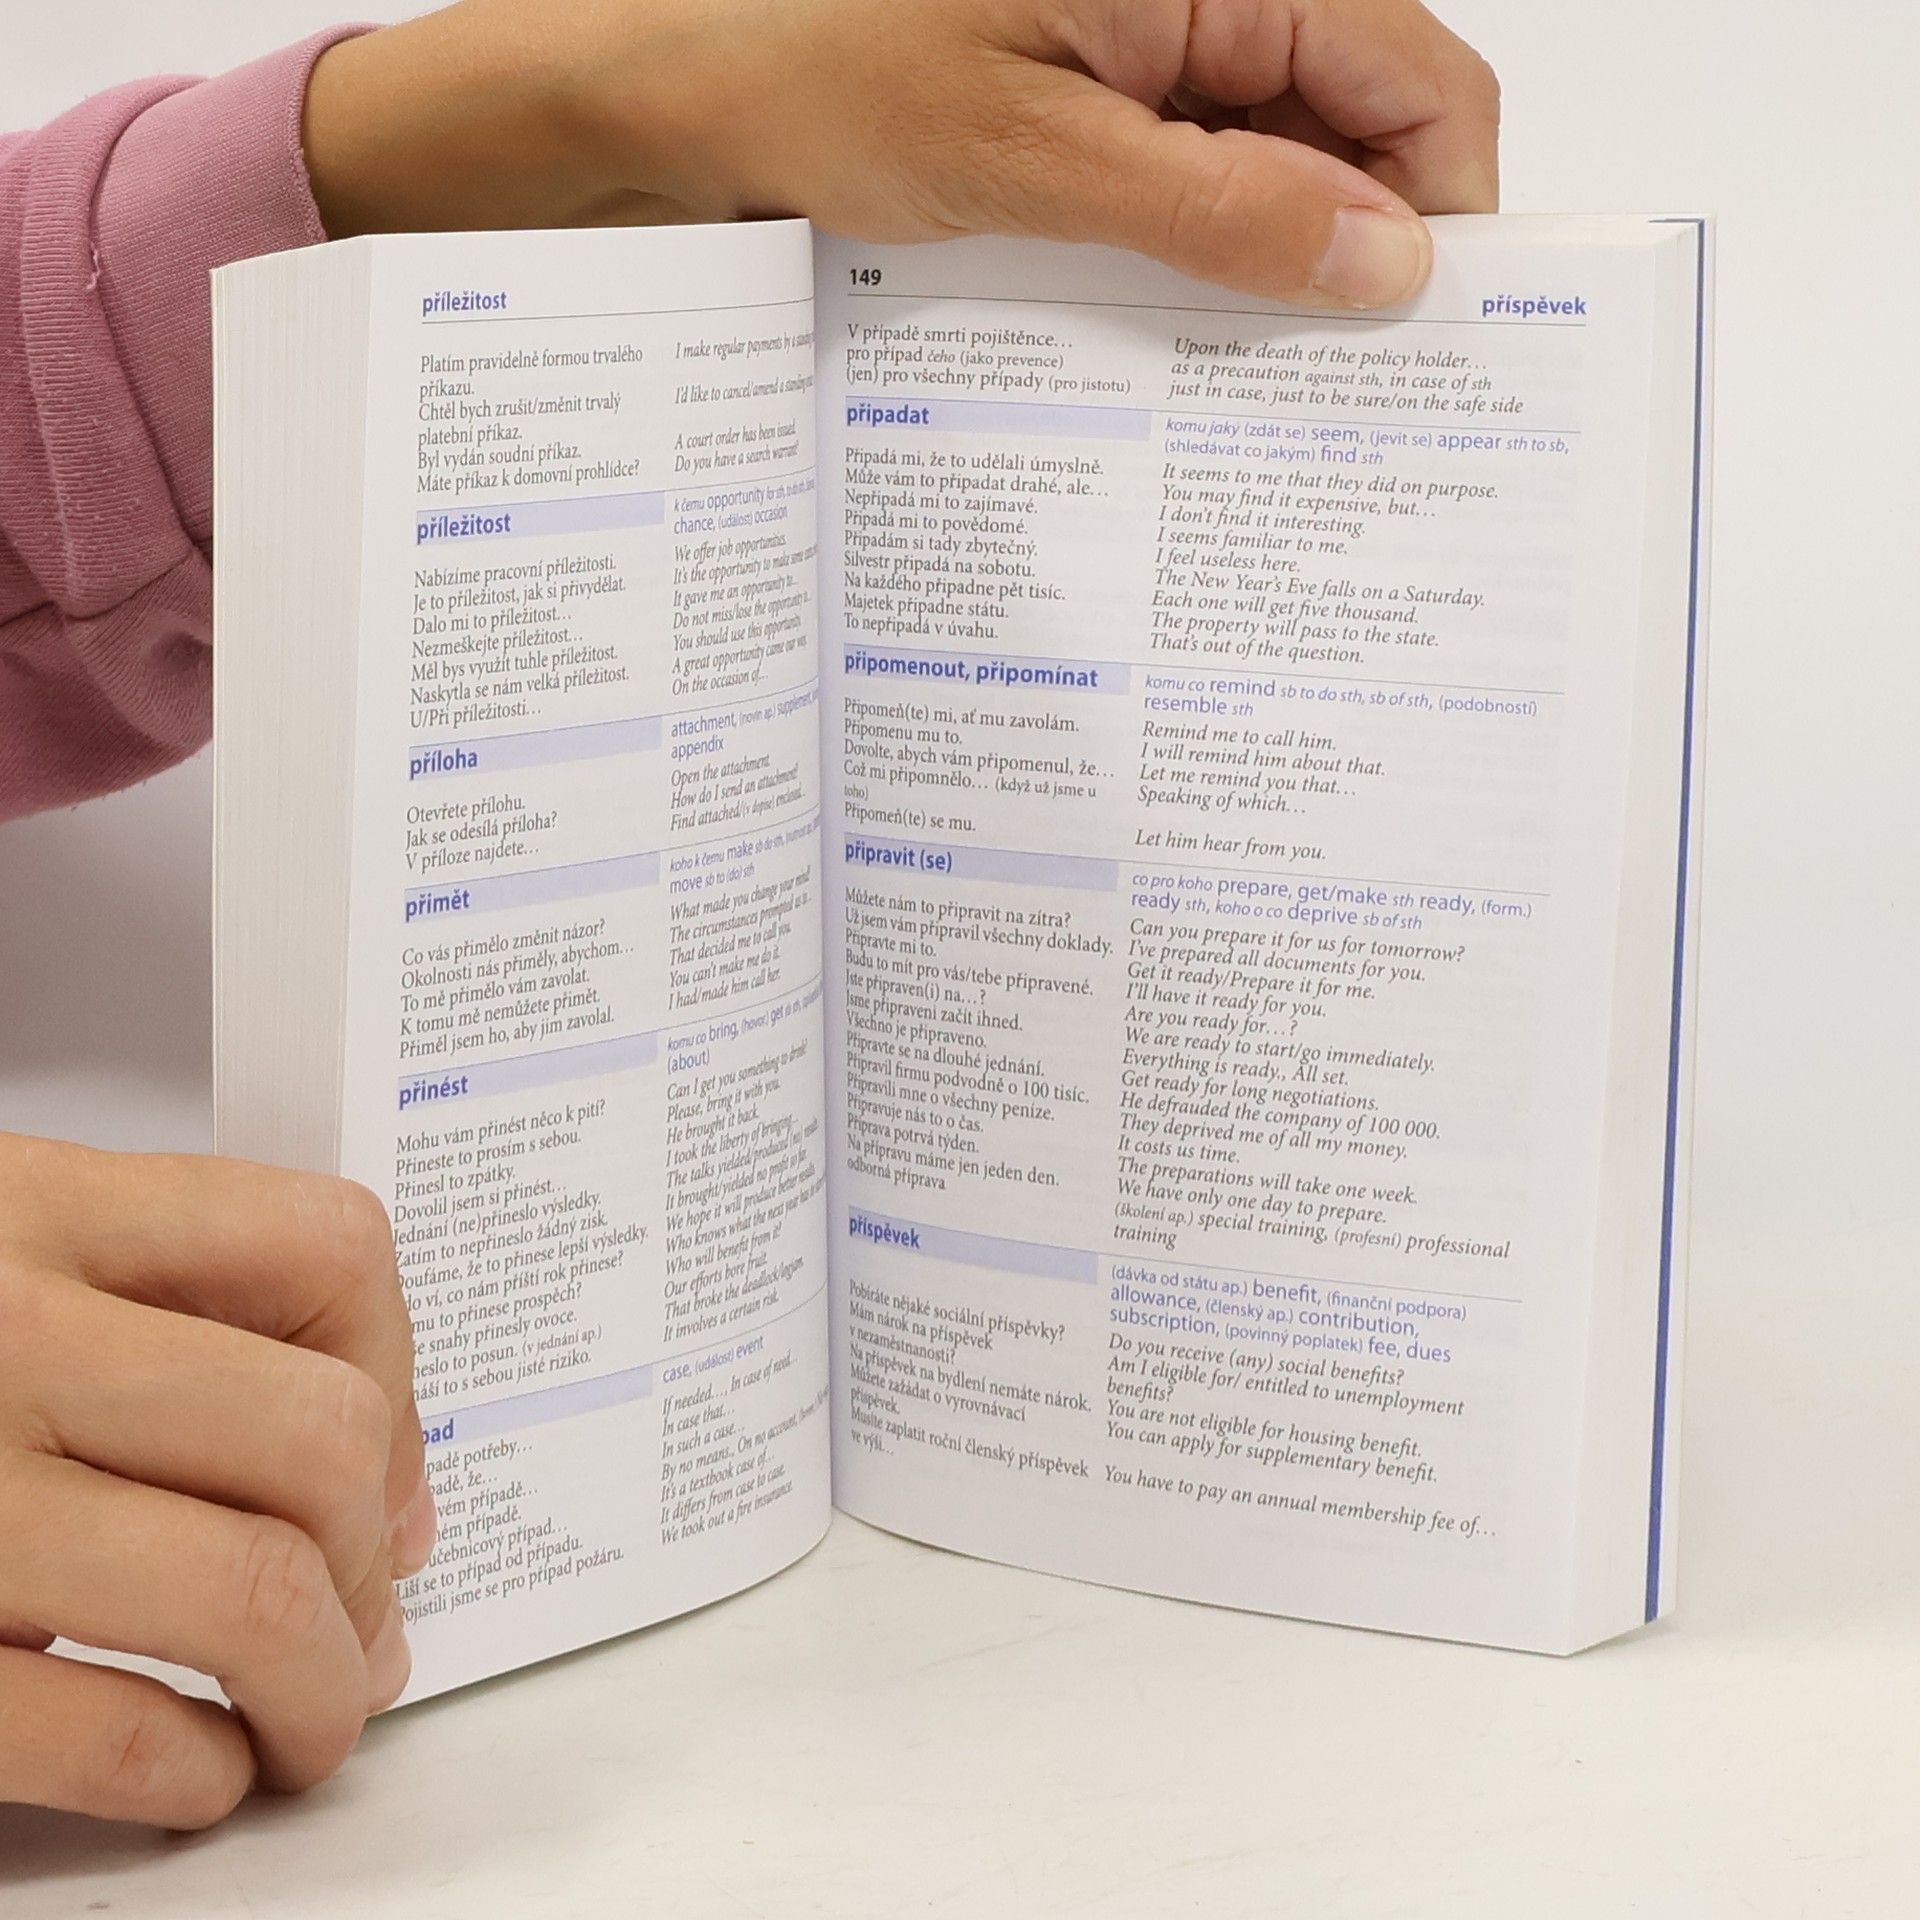 příležitost
Platím pravidelně formou trvalého
příkazu.
Chtěl bych zrušit/změnit trvalý
platební příkaz.
Byl vydán soudní příkaz.
Máte příkaz k domovní prohlídce?
I make regular payments by a
I'd like to cancel/amend a standing
A court order has been issued.
Do you have a search warrant?
příležitost
k čemu opportunity for sth, to do sth,
chance, (událost) occasion
Nabízíme pracovní příležitosti.
Je to příležitost, jak si přivydělat.
Dalo mi to příležitost…
Nezmeškejte příležitost…
Měl bys využít tuhle příležitost.
Naskytla se nám velká příležitost.
U/Při příležitosti…
We offer job opportunities.
It's the opportunity to make some
It gave me an opportunity to…
Do not miss/lose the opportunity
You should use this opportunity.
A great opportunity came our way.
On the occasion of…
příloha
attachment, (novin ap.) supplement,
appendix
Otevřete přílohu.
Jak se odesílá příloha?
V příloze najdete…
Open the attachment.
How do I send an attachment?
Find attached/(v dopise) enclosed…
přimět
koho k čemu make sb do sth,
move sb to (do) sth
Co vás přimělo změnit názor?
Okolnosti nás přiměly, abychom…
To mě přimělo vám zavolat.
K tomu mě nemůžete přimět.
Přiměl jsem ho, aby jim zavolal.
What made you change your mind?
The circumstances prompted us to…
That decided me to call you.
You can't make me do it.
I had/made him call her.
přinést
komu co bring, (hovor.) get sb sth,
(about)
Mohu vám přinést něco k pití?
Přineste to prosím s sebou.
Přinesl to zpátky.
Dovolil jsem si přinést…
Jednání (ne)přineslo výsledky.
Zatím to nepřineslo žádný zisk.
Doufáme, že to přinese lepší výsledky.
do ví, co nám příští rok přinese?
mu to přinese prospěch?
še snahy přinesly ovoce.
neslo to posun. (v jednání ap.)
náší to s sebou jisté riziko.
Can I get you something to drink?
Please, bring it with you.
He brought it back.
I took the liberty of bringing…
The talks yielded/produced (no) results.
It brought/yielded no profit so far.
We hope it will produce better results.
Who knows what the next year has
Who will benefit from it?
Our efforts bore fruit.
That broke the deadlock/logjam.
It involves a certain risk.
pad
case, (událost) event
padě potřeby…
padě, že…
vém případě…
ném případě.
učebnicový případ…
Liší se to případ od případu.
Pojistili jsme se pro případ požáru.
If needed…, In case of need…
In case that…
In such a case…
By no means., On no account,
It's a textbook case of…
It differs from case to case.
We took out a fire insurance.
149
příspěvek
V případě smrti pojištěnce…
pro případ čeho (jako prevence)
(jen) pro všechny případy (pro jistotu)
Upon the death of the policy holder…
as a precaution against sth, in case of sth
just in case, just to be sure/on the safe side
připadat
komu jaký (zdát se) seem, (jevit se) appear sth to sb,
(shledávat co jakým) find sth
Připadá mi, že to udělali úmyslně.
Může vám to připadat drahé, ale…
Nepřipadá mi to zajímavé.
Připadá mi to povědomé.
Připadám si tady zbytečný.
Silvestr připadá na sobotu.
Na každého připadne pět tisíc.
Majetek připadne státu.
To nepřipadá v úvahu.
It seems to me that they did on purpose.
You may find it expensive, but…
I don't find it interesting.
I seems familiar to me.
I feel useless here.
The New Year's Eve falls on a Saturday.
Each one will get five thousand.
The property will pass to the state.
That's out of the question.
připomenout, připomínat
komu co remind sb to do sth, sb of sth, (podobností)
resemble sth
Připomeň(te) mi, ať mu zavolám.
Připomenu mu to.
Dovolte, abych vám připomenul, že…
Což mi připomnělo… (když už jsme u
toho)
Připomeň(te) se mu.
Remind me to call him.
I will remind him about that.
Let me remind you that…
Speaking of which…
Let him hear from you.
připravit (se)
co pro koho prepare, get/make sth ready, (form.)
ready sth, koho o co deprive sb of sth
Můžete nám to připravit na zítra?
Už jsem vám připravil všechny doklady.
Připravte mi to.
Budu to mít pro vás/tebe připravené.
Jste připraven(i) na…?
Jsme připraveni začít ihned.
Všechno je připraveno.
Připravte se na dlouhé jednání.
Připravil firmu podvodně o 100 tisíc.
Připravili mne o všechny peníze.
Připravuje nás to o čas.
Příprava potrvá týden.
Na přípravu máme jen jeden den.
odborná příprava
Can you prepare it for us for tomorrow?
I've prepared all documents for you.
Get it ready/Prepare it for me.
I'll have it ready for you.
Are you ready for…?
We are ready to start/go immediately.
Everything is ready., All set.
Get ready for long negotiations.
He defrauded the company of 100 000.
They deprived me of all my money.
It costs us time.
The preparations will take one week.
We have only one day to prepare.
(školení ap.) special training, (profesní) professional
training
příspěvek
(dávka od státu ap.) benefit, (finanční podpora)
allowance, (členský ap.) contribution,
subscription, (povinný poplatek) fee, dues
Pobíráte nějaké sociální příspěvky?
Mám nárok na příspěvek
v nezaměstnanosti?
Na příspěvek na bydlení nemáte nárok.
Můžete zažádat o vyrovnávací
příspěvek.
Musíte zaplatit roční členský příspěvek
ve výši…
Do you receive (any) social benefits?
Am I eligible for/ entitled to unemployment
benefits?
You are not eligible for housing benefit.
You can apply for supplementary benefit.
You have to pay an annual membership fee of…